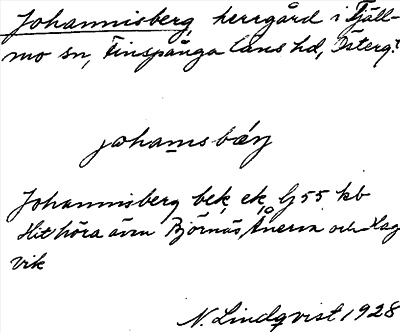 Johannisberg, herrgård i Tjäll-
mo sn, Finspånga läns hd, Österg.
johannsbærj
Johannisberg bek. ek. Gj 55 kb
Hit höra även Björnäs, Ånerna och Hag
vik
N. Lindqvist 1928